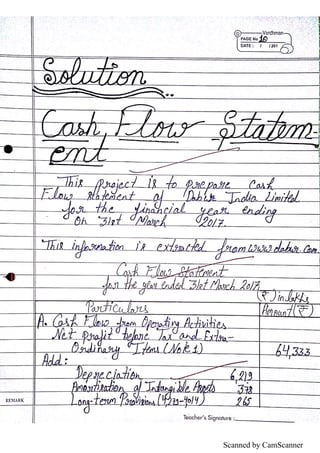 Vardhman
PAGE No. 10
DATE : / /201
Solution
Cash Flow Statem-
ent
This project is to prepare Cash
Flow Statement of Dabur India Limited
for the financial year ending
on 31st March 2017.
This information is extracted from www.dabur.com
Cash Flow Statement
for the year ended 31st March 2017
(₹) in lakhs
Particulars Amount (₹)
A. Cash Flow from Operating Activities
Net Profit before Tax and Extra-
Ordinary Items (Note 1) 64,333
Add:
Depreciation 6,219
Amortisation of Intangible Assets 378
Long-term Provisions (4,279-4014) 265
REMARK
Teacher's Signature :
Scanned by CamScanner